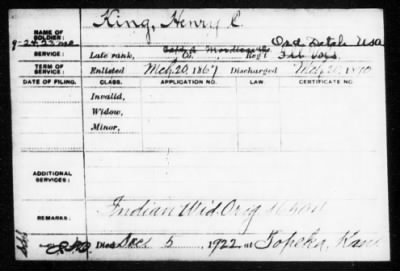 King, Henry C.
NAME OF SOLDIER:
Ord. Detch. USA
SERVICE: Late rank, Co. Reg't
TERM OF SERVICE: Enlisted Mch 20, 1867 Discharged Mch 20, 1870
DATE OF FILING. CLASS. APPLICATION NO. LAW CERTIFICATE NO.
Invalid,
Widow,
Minor,
ADDITIONAL SERVICES:
Indian Wid. Orig
REMARKS:
Died Dec 5, 1922, at Topeka, Kans